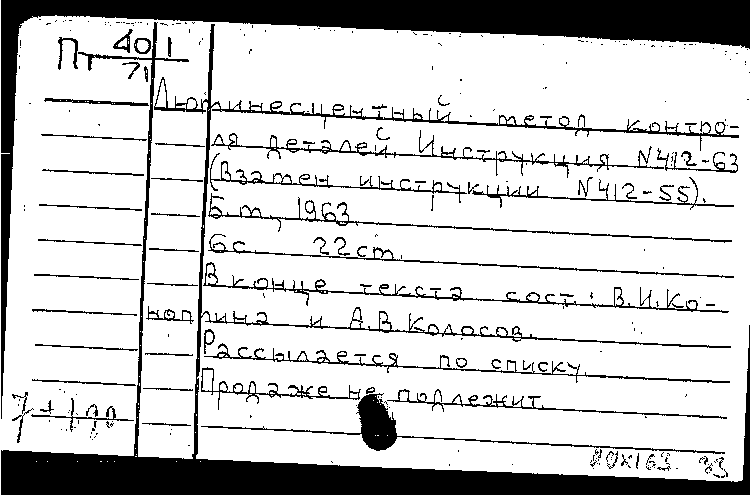 Пт 40 1
71
Люминесцентный метод контро-
ля деталей. Инструкция N412-63
(Взамен инструкции N412-55).
Б.м., 1963.
6с. 22см.
В конце текста сост.: В.И.Ко-
наплина и А.В.Колосов.
Рассылается по списку.
Продаже не подлежит.